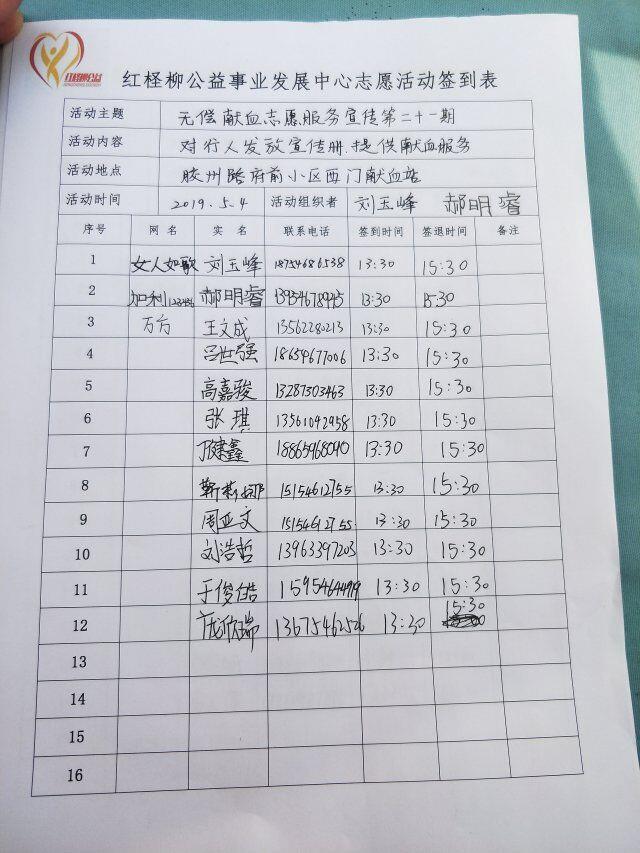 红柽柳公益
红柽柳公益事业发展中心志愿活动签到表
活动主题 无偿献血志愿服务宣传第二十一期
活动内容 对行人发放宣传册.提供献血服务
活动地点 胶州路府前小区西门献血站
活动时间 2019.5.4 活动组织者 刘玉峰 郝明睿
序号 网名 实名 联系电话 签到时间 签退时间 备注
1 女人如歌 刘玉峰 18754686538 13:30 15:30
2 加利123456 郝明睿 13954678945 13:30 15:30
3 万方 王文成 13562280213 13:30 15:30
4 吕世强 18654677006 13:30 15:30
5 高嘉骏 13287303463 13:30 15:30
6 张琪 13561092958 13:30 15:30
7 健鑫 18865968090 13:30 15:30
8 靳莉娜 15154612755 13:30 15:30
9 周亚文 15154612755 13:30 15:30
10 刘浩哲 13963397203 13:30 15:30
11 于俊皓 15954644919 13:30 15:30
12 庞欣瑞 13675462526 13:30 15:30
13
14
15
16